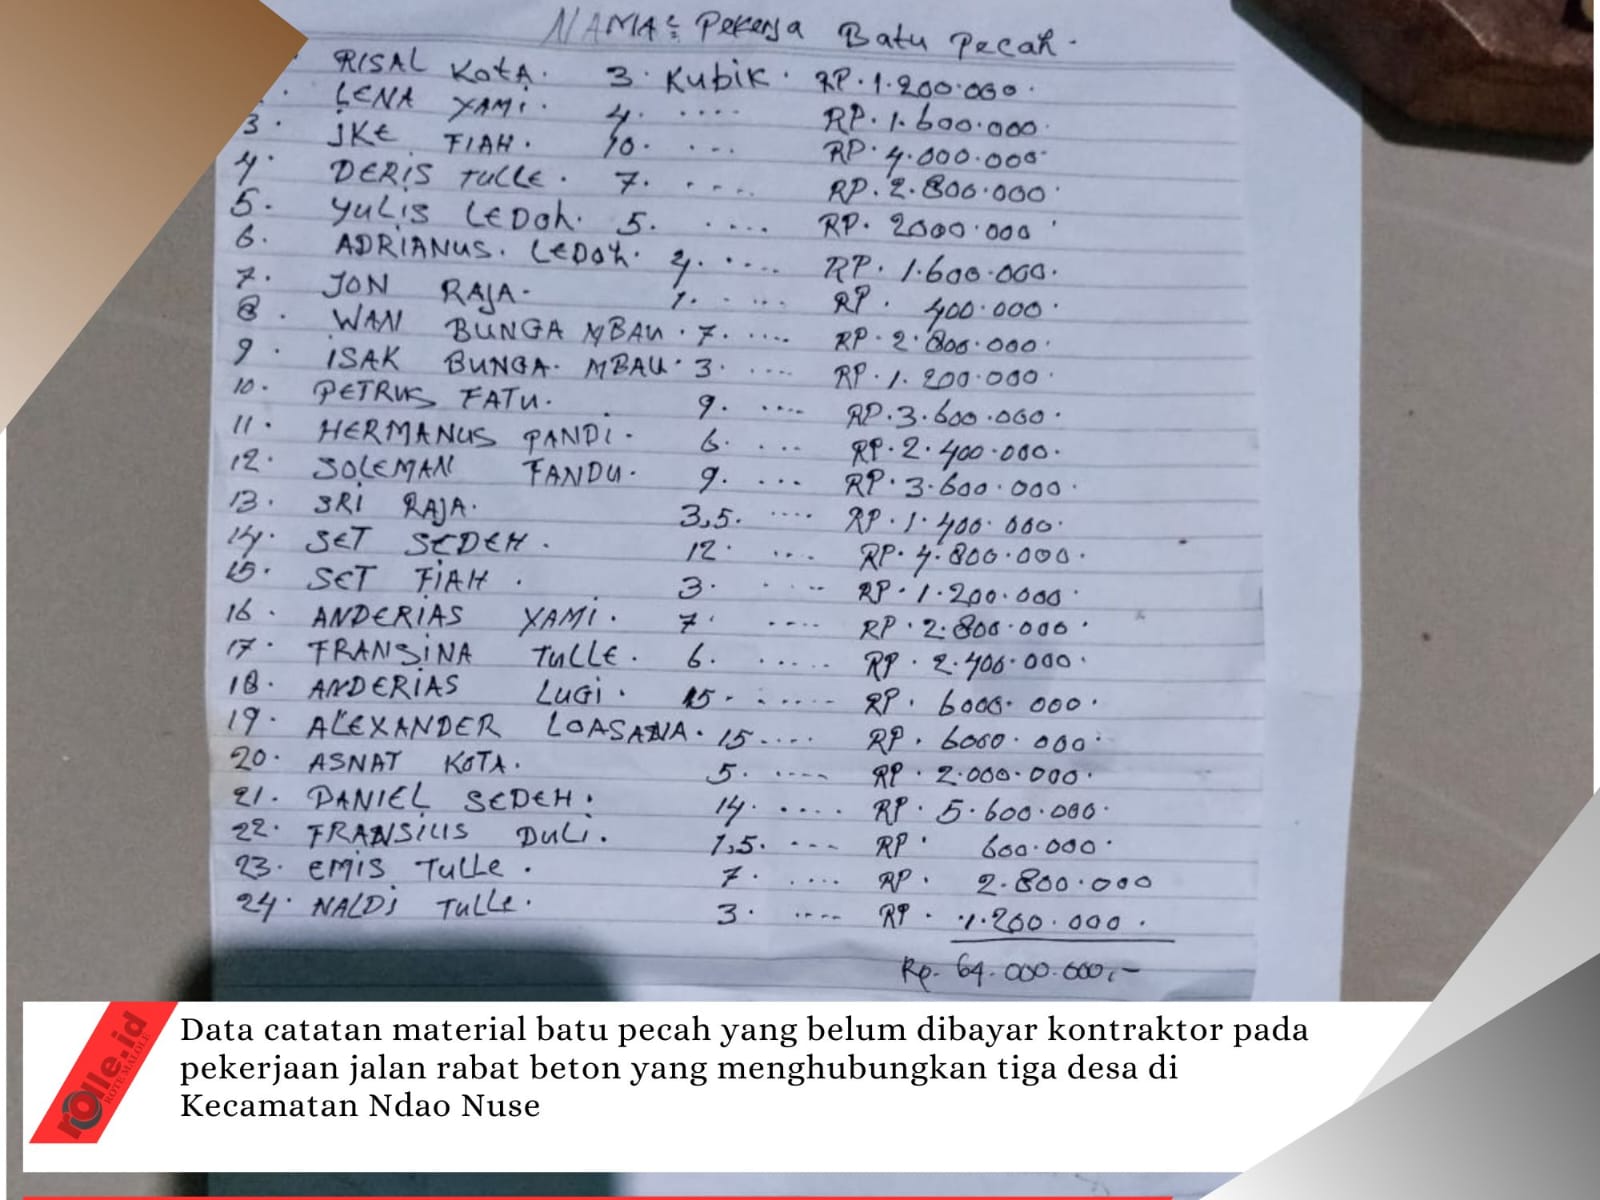 NAMA: Pekerja Batu Pecah.
RISAL KOTA. 3. Kubik. RP. 1.200.000.
LENA YAMI. 4. .... RP. 1.600.000.
3. IKE FIAH. 10. ... RP. 4.000.000.
4. DERIS TULLE. 7. .... RP. 2.800.000.
5. YULIS LEDOH. 5. .... RP. 2000.000.
6. ADRIANUS. LEDOH. 4. .... RP. 1.600.000.
7. JON RAJA. 1. .... RP. 400.000.
8. WAN BUNGA MBAU. 7. .... RP. 2.800.000.
9. ISAK BUNGA. MBAU. 3. .... RP. 1.200.000.
10. PETRUS FATU. 9. .... RP. 3.600.000.
11. HERMANUS PANDI. 6. ... RP. 2.400.000.
12. SOLEMAN FANDU. 9. ... RP. 3.600.000.
13. SRI RAJA. 3,5. .... RP. 1.400.000.
14. SET SEDEH. 12. .... RP. 4.800.000.
15. SET FIAH. 3. .... RP. 1.200.000.
16. ANDERIAS YAMI. 7. .... RP. 2.800.000.
17. FRANSINA TULLE. 6. ..... RP. 2.400.000.
18. ANDERIAS LUGI. 15. ..... RP. 6000.000.
19. ALEXANDER LOASANA. 15.... RP. 6000.000.
20. ASNAT KOTA. 5. .... RP. 2.000.000.
21. DANIEL SEDEH. 14. .... RP. 5.600.000.
22. FRANSILIS DULI. 1,5. ... RP. 600.000.
23. EMIS TULLE. 7. .... RP. 2.800.000
24. NALDI TULLE. 3. .... RP. 1.200.000.
Rp. 64.000.000,-
rOlle.id
ROTE MALOLE
Data catatan material batu pecah yang belum dibayar kontraktor pada
pekerjaan jalan rabat beton yang menghubungkan tiga desa di
Kecamatan Ndao Nuse